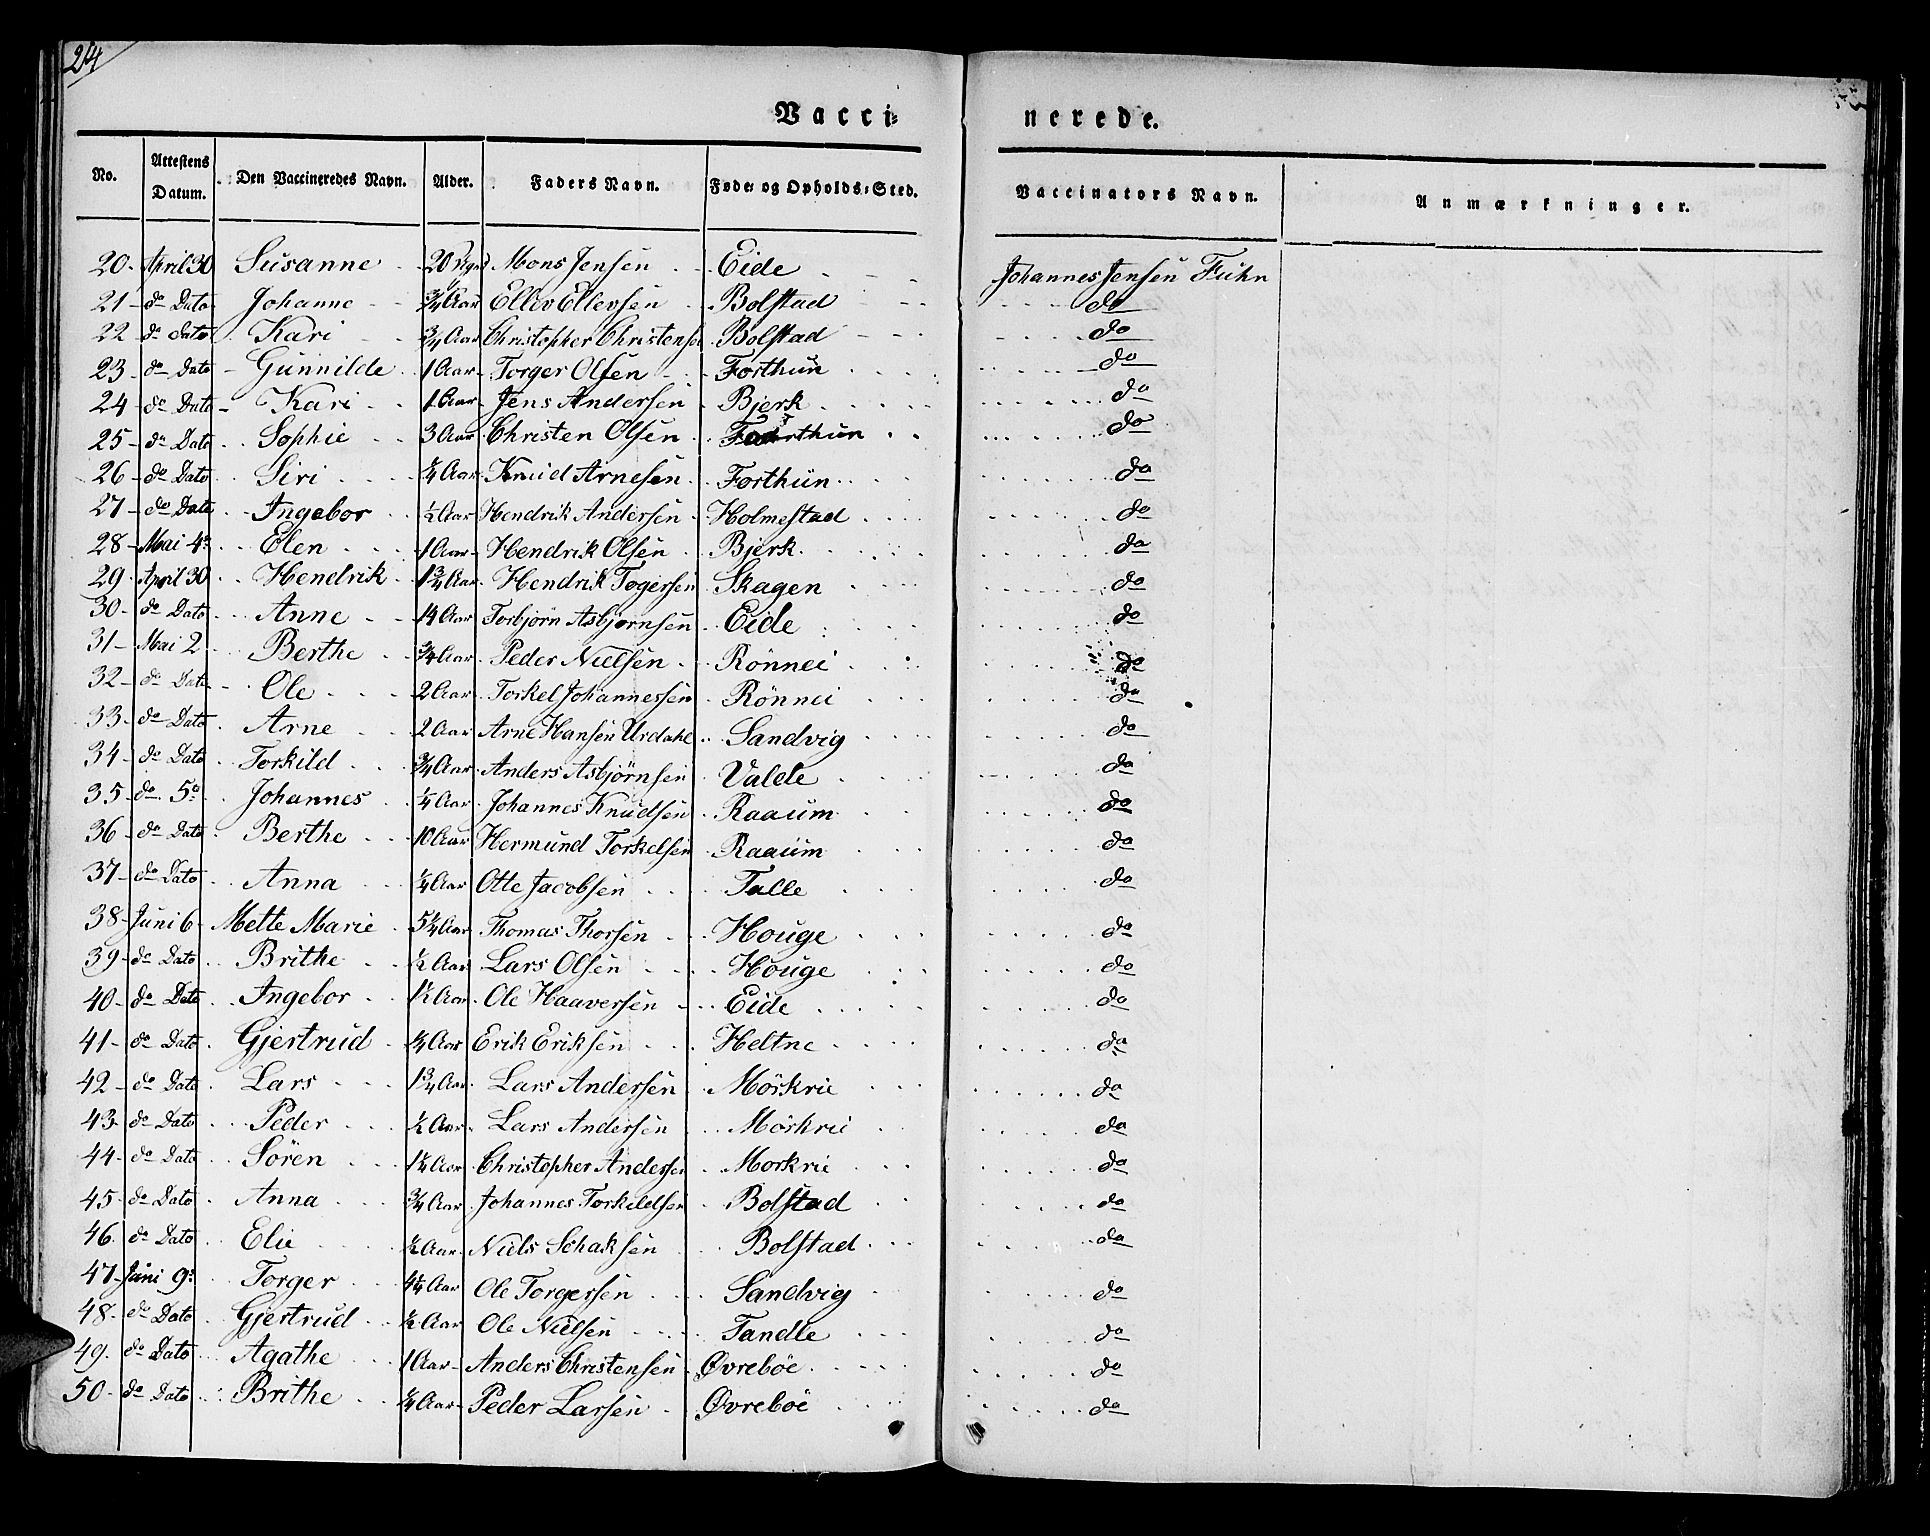 24
Vacci- nerede.
No. Attestens Datum. Den Vaccineredes Navn. Alder. Faders Navn. Føde- og Opholds-Sted. Vaccinators Navn. Anmærkninger.
20 April 30 Susanne 20 Mons Jensen Eide Johannes Jensen Fuhn
21 do Dato Johanne 3/4 Aar Eller Ellersen Bolstad do
22 do Dato Kari 3/4 Aar Christopher Christensen Bolstad do
23 do Dato Gunnilde 1 Aar Torger Olsen Forthun do
24 do Dato Kari 1 Aar Jens Andersen Bjerk do
25 do Dato Sophie 3 Aar Christen Olsen Forthun do
26 do Dato Siri Aar Knud Arnesen Forthun do
27 do Dato Ingebor 1/2 Aar Hendrik Andersen Holmestad do
28 Mai 4 Elen 1 Aar Hendrik Olsen Bjerk do
29 April 30 Hendrik 1 3/4 Aar Hendrik Togersen Skagen do
30 do Dato Anne Aar Torbjørn Asbjørnsen Eide do
31 Mai 2 Berthe 3/4 Aar Peder Nielsen Rönnei do
32 do Dato Ole 2 Aar Torkel Johannessen Rönnei do
33 do Dato Arne 2 Aar Arne Hansen Urdahl Sandvig do
34 do Dato Torkild 3/4 Aar Anders Asbjörnsen Valde do
35 do 5 Johannes 1/4 Aar Johannes Knudsen Raaum do
36 do Dato Berthe 10 Aar Hermund Torkelsen Raaum do
37 do Dato Anna 1/4 Aar Otte Jacobsen Talle do
38 Juni 6 Mette Marie 5 1/4 Aar Thomas Thorsen Houge do
39 do Dato Brithe 1/2 Aar Lars Olsen Houge do
40 do Dato Ingebor 1 1/2 Aar Ole Haaversen Eide do
41 do Dato Gjertrud Aar Erik Eriksen Heltne do
42 do Dato Lars 1 3/4 Aar Lars Andersen Mörkrie do
43 do Dato Peder 1/2 Aar Lars Andersen Mörkrie do
44 do Dato Sören 1 1/4 Aar Christopher Andersen Morkrie do
45 do Dato Anna 3/4 Aar Johannes Torkildsen Bolstad do
46 do Dato Elie Aar Niels Schaksen Bolstad do
47 Juni 9 Torger 4 1/2 Aar Ole Torgersen Sandvig do
48 do Dato Gjertrud 1/2 Aar Ole Nielsen Tandle do
49 do Dato Agathe 1 Aar Anders Christensen Øvreböe do
50 do Dato Brithe Aar Peder Larsen Øvreböe do